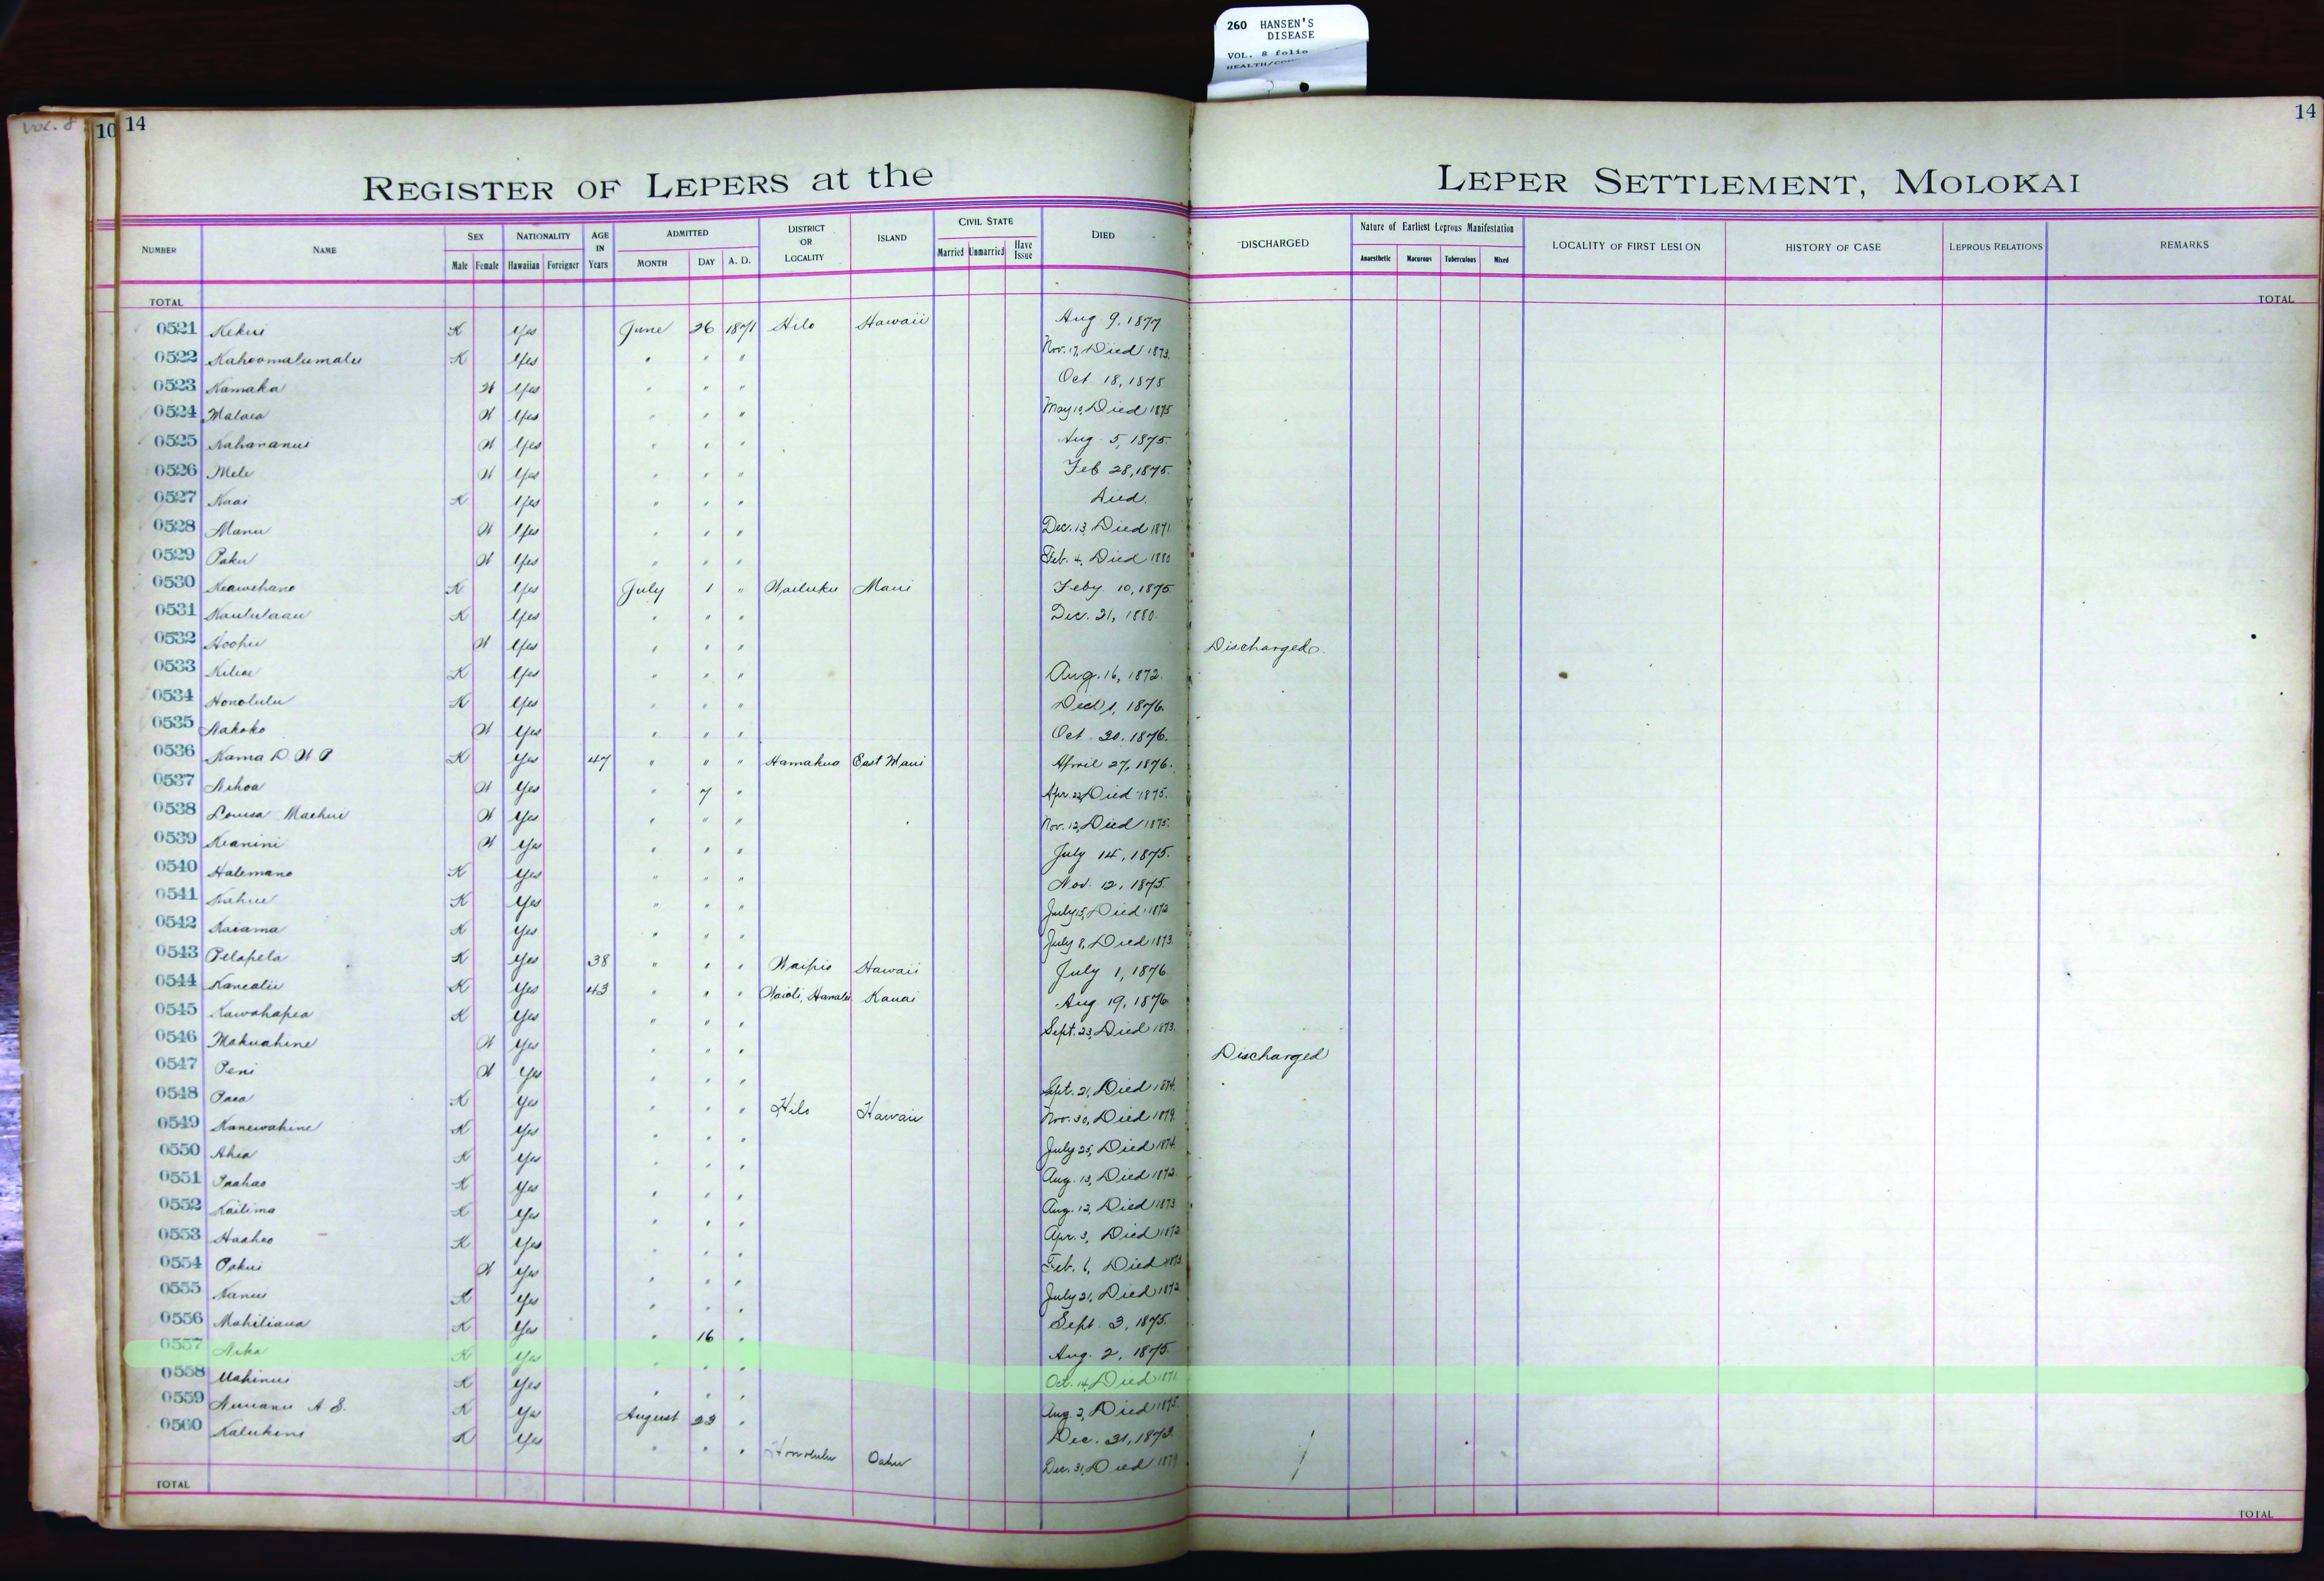 260 HANSEN'S
DISEASE
VOL. 8 folio
VOL. 8
10 14 14
REGISTER OF LEPERS at the LEPER SETTLEMENT, MOLOKAI
NUMBER NAME SEX Male Female NATIONALITY Hawaiian Foreigner AGE IN Years ADMITTED MONTH DAY A. D. DISTRICT OR LOCALITY ISLAND CIVIL STATE Married Unmarried Have Issue DIED DISCHARGED Nature of Earliest Leprous Manifestation Anaesthetic Macurous Tuberculous Mixed LOCALITY OF FIRST LESION HISTORY OF CASE LEPROUS RELATIONS REMARKS
TOTAL TOTAL
0521 Kekui K Yes June 26 1871 Hilo Hawaii Aug 9, 1877
0522 Kahoomalumalu K Yes " " " Nov. 17, Died 1873.
0523 Kamaka W Yes " " " Oct 18, 1875
0524 Malaea W Yes " " " May 10, Died 1875
0525 Kahananui W Yes " " " Aug. 5, 1875.
0526 Mele W Yes " " " Feb 28, 1875.
0527 Kaai K Yes " " " Died.
0528 Manu W Yes " " " Dec. 13, Died 1871
0529 Paku W Yes " " " Feb. 4, Died 1880
0530 Keawehano K Yes July 1 " Wailuku Maui Feby 10, 1875
0531 Kaululaau K Yes " " " Dec. 21, 1880.
0532 Hoohii W Yes " " " Discharged.
0533 Kiliae K Yes " " " Aug. 16, 1872.
0534 Honolulu K Yes " " " 1, 1876.
0535 Kakoko W Yes " " " Oct 20, 1876.
0536 Kama D. W P K Yes 47 " " " Hamakua East Maui April 27, 1876.
0537 Nihoa W Yes " 7 " Apr. 22, Died 1875.
0538 Louisa Maehui W Yes " " " Nov. 12, Died 1875.
0539 Keanini W Yes " " " July 14, 1875.
0540 Halemano K Yes " " " Nov. 12, 1875.
0541 Kahue K Yes " " " July 15, Died 1872
0542 Kaiama K Yes " " " July 8, Died 1873.
0543 Pelapela K Yes 38 " " " Waipio Hawaii July 1, 1876
0544 Kanealii K Yes 43 " " " Waioli, Hanalei Kauai Aug 19, 1876
0545 Kawahapea K Yes " " " Sept. 23, Died 1873.
0546 Makuahine W Yes " " " Discharged
0547 Peni W Yes " " " Sept. 21, Died 1874.
0548 Paea K Yes " " " Hilo Hawaii Nov. 30, Died 1879.
0549 Kanewahine K Yes " " " July 25, Died 1874.
0550 Ahia K Yes " " " Aug. 13, Died 1872.
0551 Paahao K Yes " " " Aug. 12, Died 1873
0552 Kailima K Yes " " " Apr. 3, Died 1872
0553 Haaheo K Yes " " " Feb. 6, Died 1873
0554 Pakui W Yes " " " July 21, Died 1872
0555 Nanui K Yes " " " Sept. 3, 1875.
0556 Mahiliaua K Yes " 16 " Aug. 2, 1875.
0557 Nika K Yes " " " Oct. 14, Died 1871
0558 Mahinui K Yes " " " Aug. 2, Died 1875.
0559 Nuuanu A S. K Yes August 23 " Dec. 31, 1873.
0560 Kalukini K Yes " " " Honolulu Oahu Dec. 31, Died 1879
TOTAL TOTAL